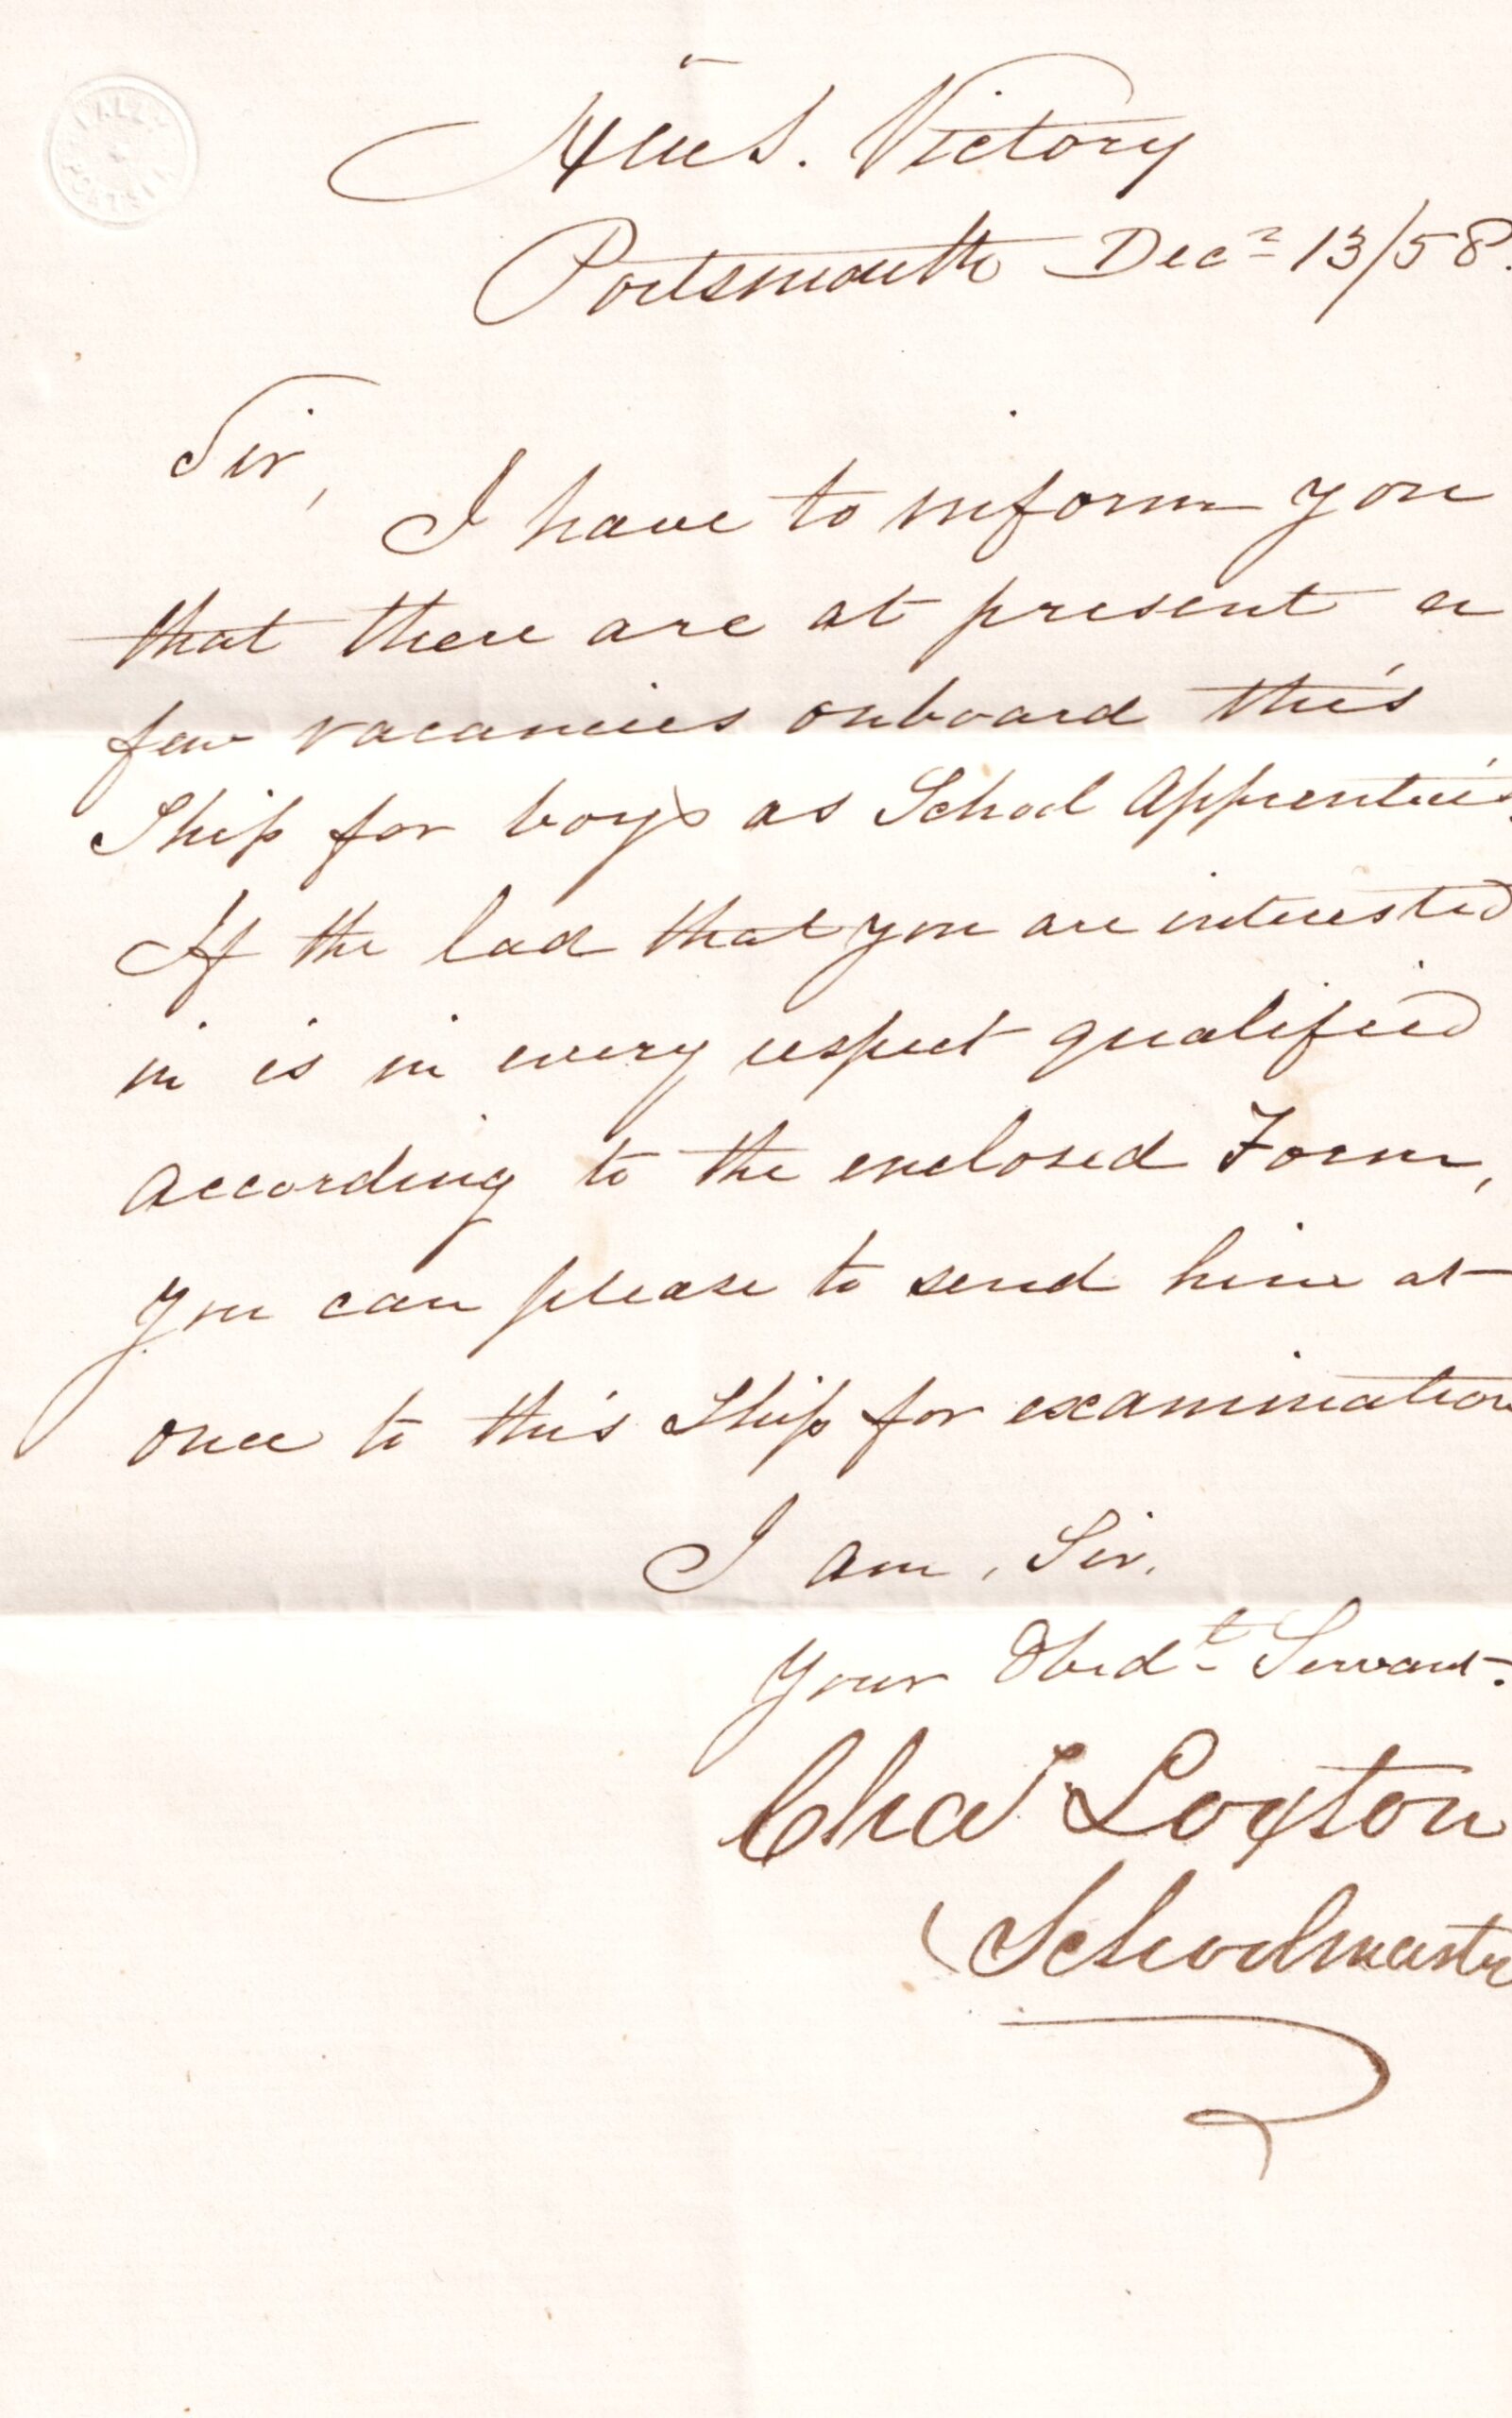 H.M.S. Victory
Portsmouth Decr 13/58.
Sir,
I have to inform you
that there are at present a
few vacancies onboard this
Ship for boys as School Apprentices.
If the lad that you are interested
in is in every respect qualified
according to the enclosed Form,
you can please to send him at
once to this Ship for examination
I am, Sir,
Your Obedt Servant.
Chas Loxton
Schoolmaster